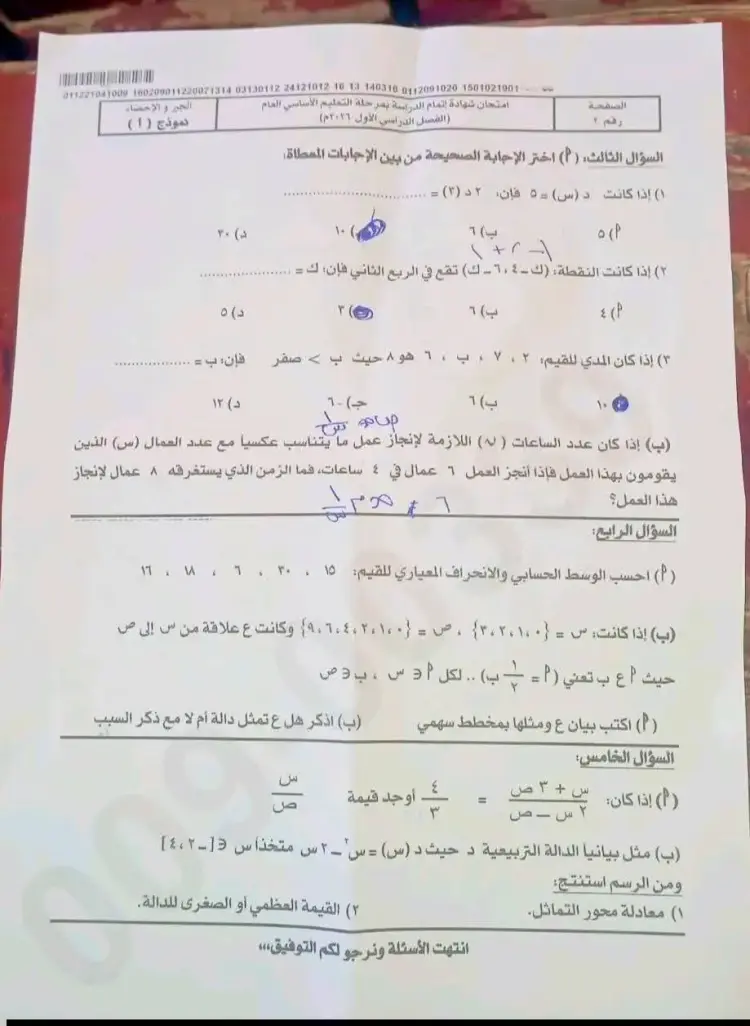 011221041009 160209011220021314 03130112 24121012 16 13 140316 0112091020 1501021901
الصفحة
رقم ٢
امتحان شهادة إتمام الدراسة بمرحلة التعليم الأساسي العام
(الفصل الدراسي الأول ٢٠٢٦م)
الجبر والإحصاء
نموذج (١)
السؤال الثالث: (أ) اختر الإجابة الصحيحة من بين الإجابات المعطاة:
١) إذا كانت د (س) = ٥ فإن: ٢ د (٣) = ..............................
أ) ٥ ب) ٦ ١٠ د) ٣٠
٢) إذا كانت النقطة: (ك – ٤، ٦ – ك) تقع في الربع الثاني فإن: ك = ....................
أ) ٤ ب) ٦ ٣ د) ٥
٣) إذا كان المدي للقيم: ٢ ، ٧ ، ب ، ٦ هو ٨ حيث ب > صفر فإن: ب = .................
١٠ ب) ٦ جـ) -٦ د) ١٢
(ب) إذا كان عدد الساعات (ن) اللازمة لإنجاز عمل ما يتناسب عكسياً مع عدد العمال (س) الذين
يقومون بهذا العمل فإذا أنجز العمل ٦ عمال في ٤ ساعات، فما الزمن الذي يستغرقه ٨ عمال لإنجاز
هذا العمل؟
السؤال الرابع:
(أ) احسب الوسط الحسابي والانحراف المعياري للقيم: ١٥ ، ٢٠ ، ٦ ، ١٨ ، ١٦
(ب) إذا كانت: س = {٠، ١، ٢، ٣} ، ص = {٠، ١، ٢، ٤، ٦، ٩} وكانت ع علاقة من س إلى ص
حيث أ ع ب تعني (أ = ١/٢ ب) .. لكل أ ∈ س ، ب ∈ ص
(أ) اكتب بيان ع ومثلها بمخطط سهمي (ب) اذكر هل ع تمثل دالة أم لا مع ذكر السبب
السؤال الخامس:
(أ) إذا كان: (س + ٣ ص)/(٢ س – ص) = ٤/٣ أوجد قيمة س/ص
(ب) مثل بيانياً الدالة التربيعية د حيث د (س) = س² – ٢ س متخذاً س ∈ [-٢، ٤]
ومن الرسم استنتج:
١) معادلة محور التماثل. ٢) القيمة العظمي أو الصغرى للدالة.
انتهت الأسئلة ونرجو لكم التوفيق،،،